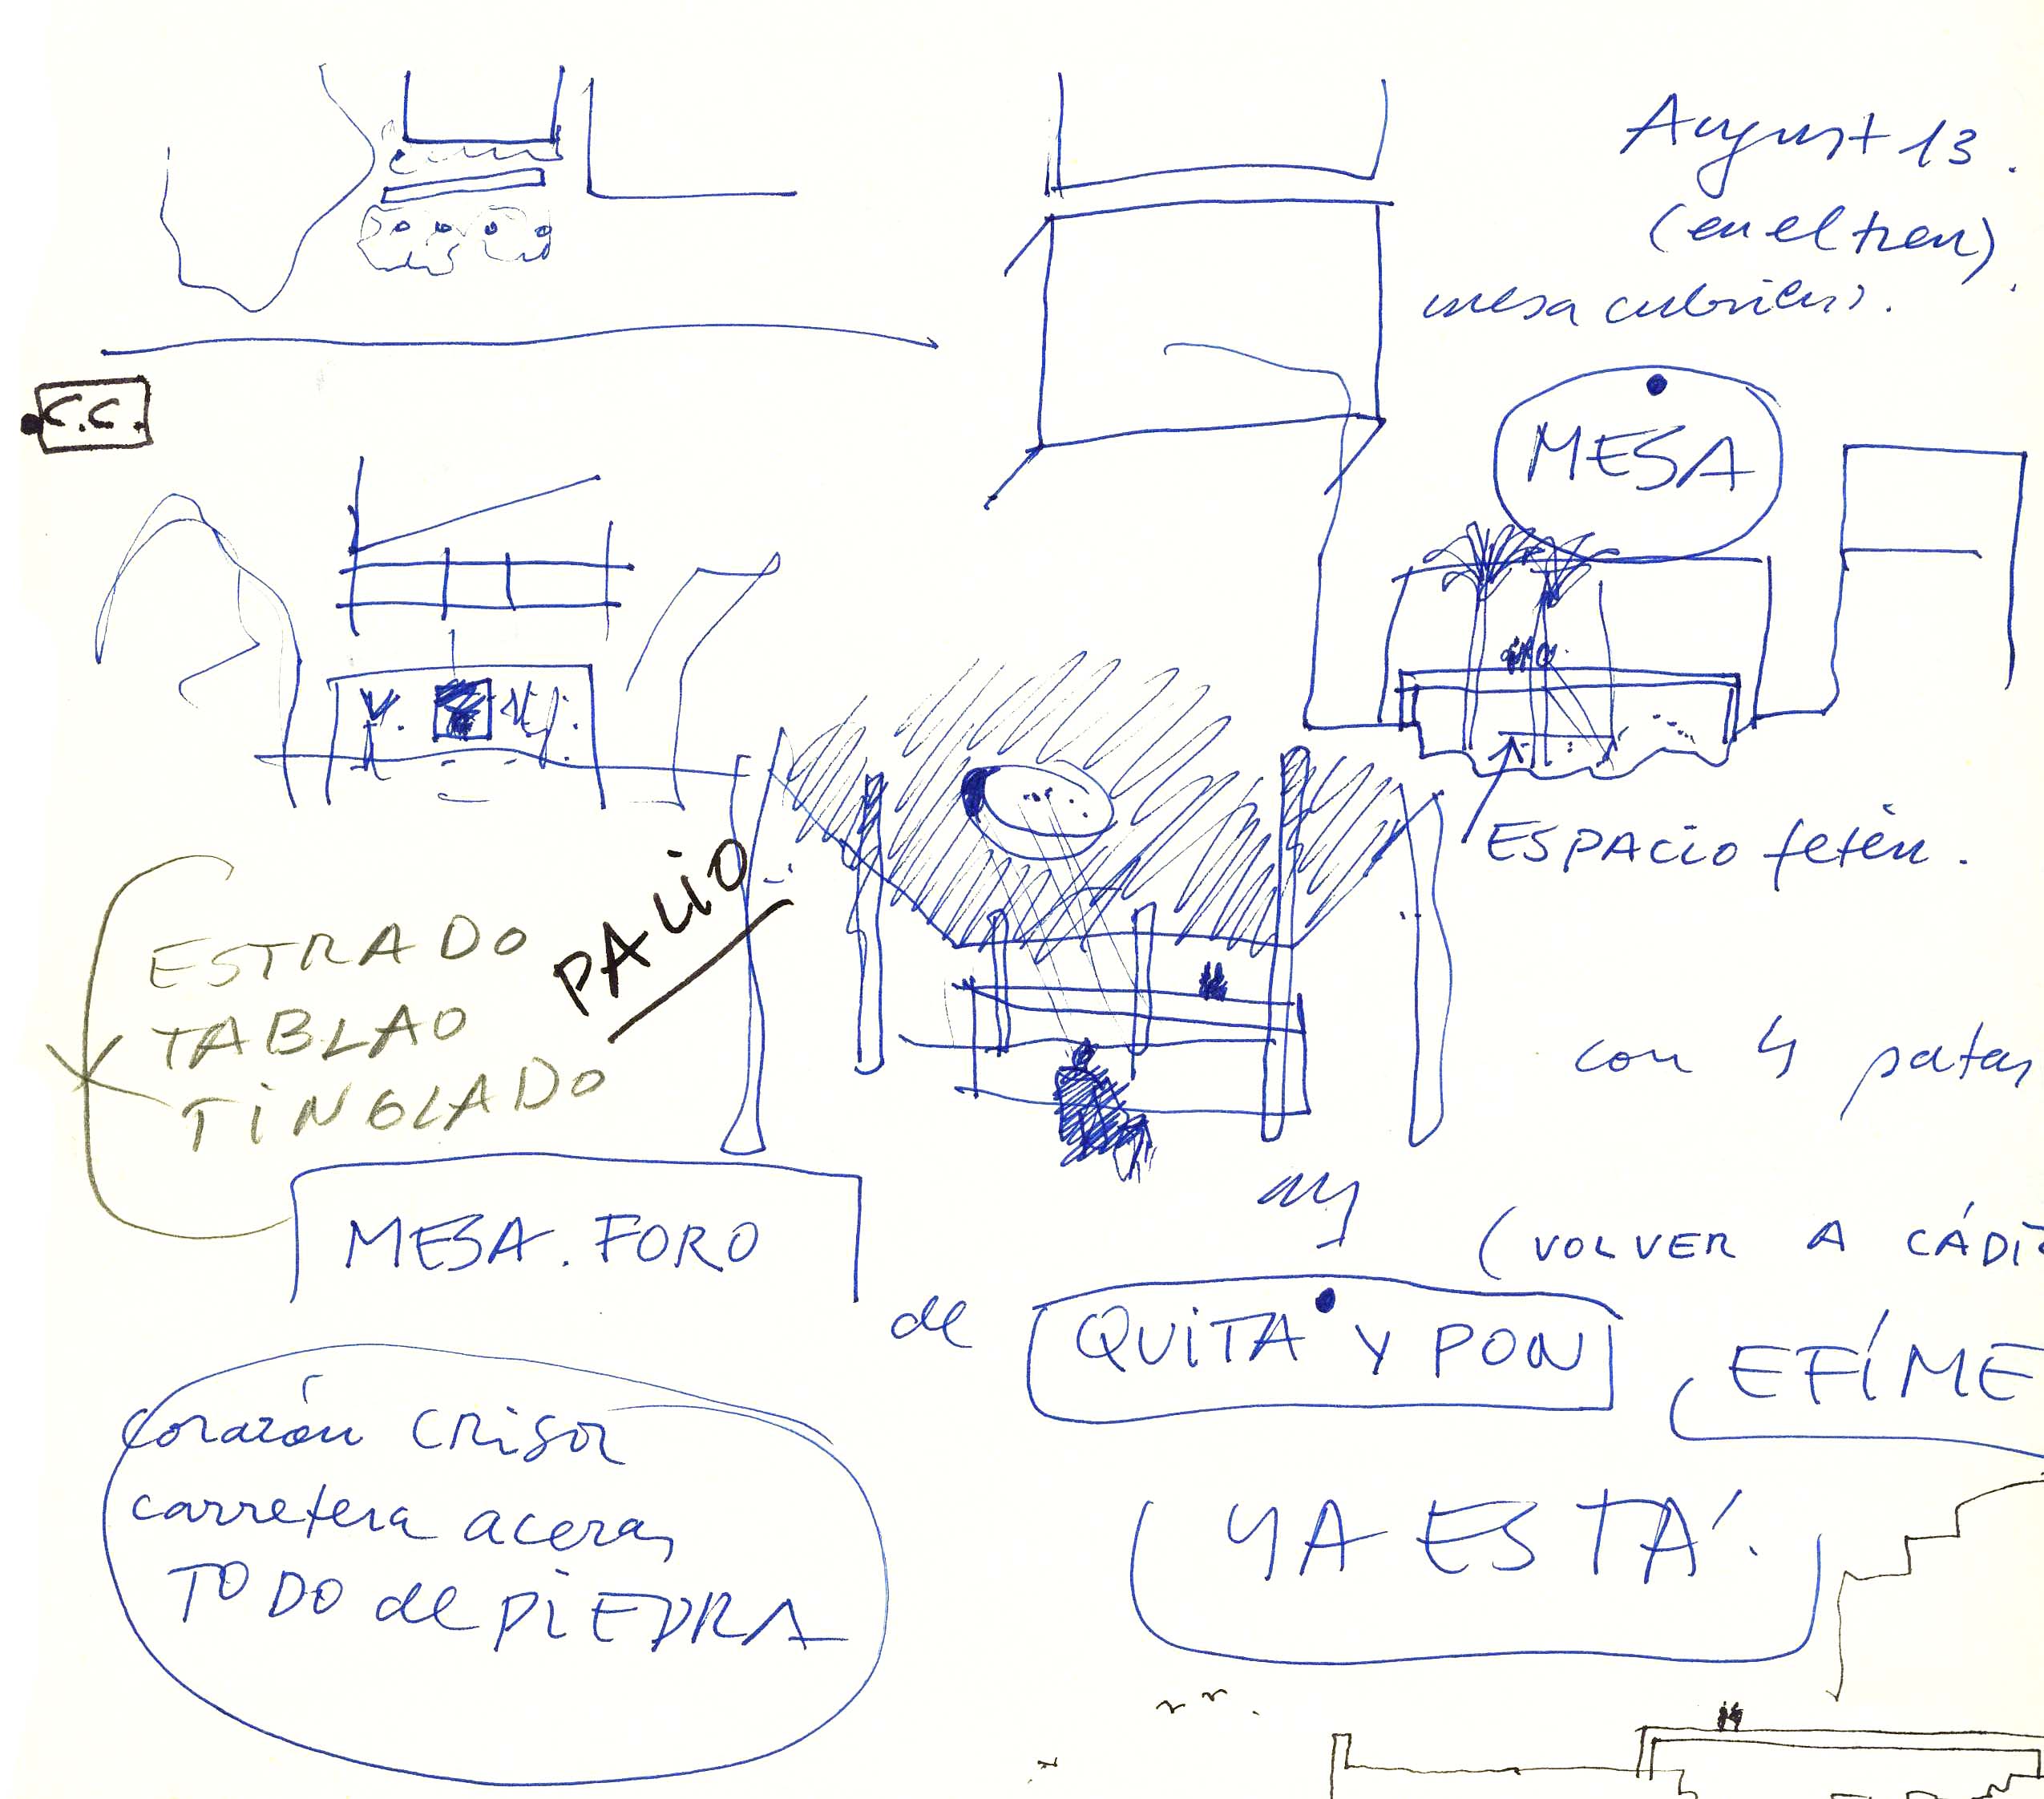 August 13.
(en el tren)
mesa
C.C.
MESA
ESPACIO fetén.
PALIO
ESTRADO
TABLAO
TINGLADO
con 4 patas
MESA.FORO
(VOLVER A CÁDIZ
de QUITA Y PON
EFÍME
corazón CRISOL
carretera aceras
TODO de PIEDRA
YA ESTÁ.